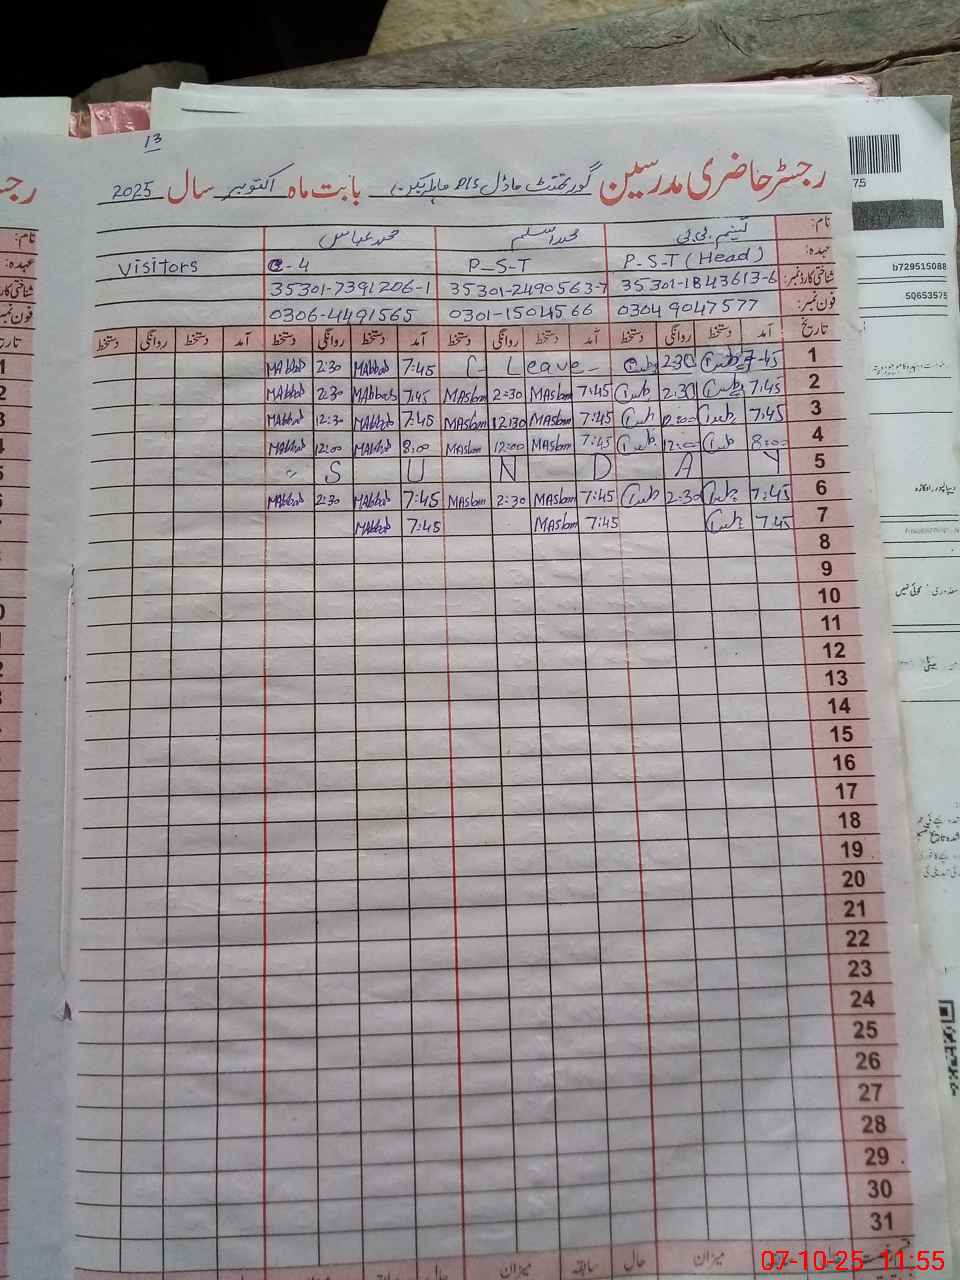 13
رجسٹر حاضری مدرسین گورنمنٹ ماڈل P/S بابت ماہ اکتوبر سال 2025
نام:
محمد اسلم
محمد عباس
عہدہ:
P-S-T (Head)
P-S-T
C-4
Visitors
شناختی کارڈ نمبر:
35301-1843613-6
35301-2490563-7
35301-7391206-1
فون نمبر:
0304 9047577
0301-1504566
0306-4491565
تاریخ آمد دستخط روانگی دستخط آمد دستخط روانگی دستخط آمد دستخط روانگی دستخط آمد دستخط روانگی دستخط
1 7:45 2:30 Leave 7:45 MAbbas 2:30 MAbbas
2 7:45 2:30 7:45 MAslam 2:30 MAslam 7:45 MAbbas 2:30 MAbbas
3 7:45 12:00 7:45 MAslam 12:30 MAslam 7:45 MAbbas 12:30 MAbbas
4 8:00 12:00 7:45 MAslam 12:00 MAslam 8:00 MAbbas 12:00 MAbbas
5 S U N D A Y
6 7:45 2:30 7:45 MAslam 2:30 MAslam 7:45 MAbbas 2:30 MAbbas
7 7:45 7:45 MAslam 7:45 MAbbas
8
9
10
11
12
13
14
15
16
17
18
19
20
21
22
23
24
25
26
27
28
29
30
31
میزان حال سابقہ میزان حال
b729515088
50653575
75
07-10-25 11:55